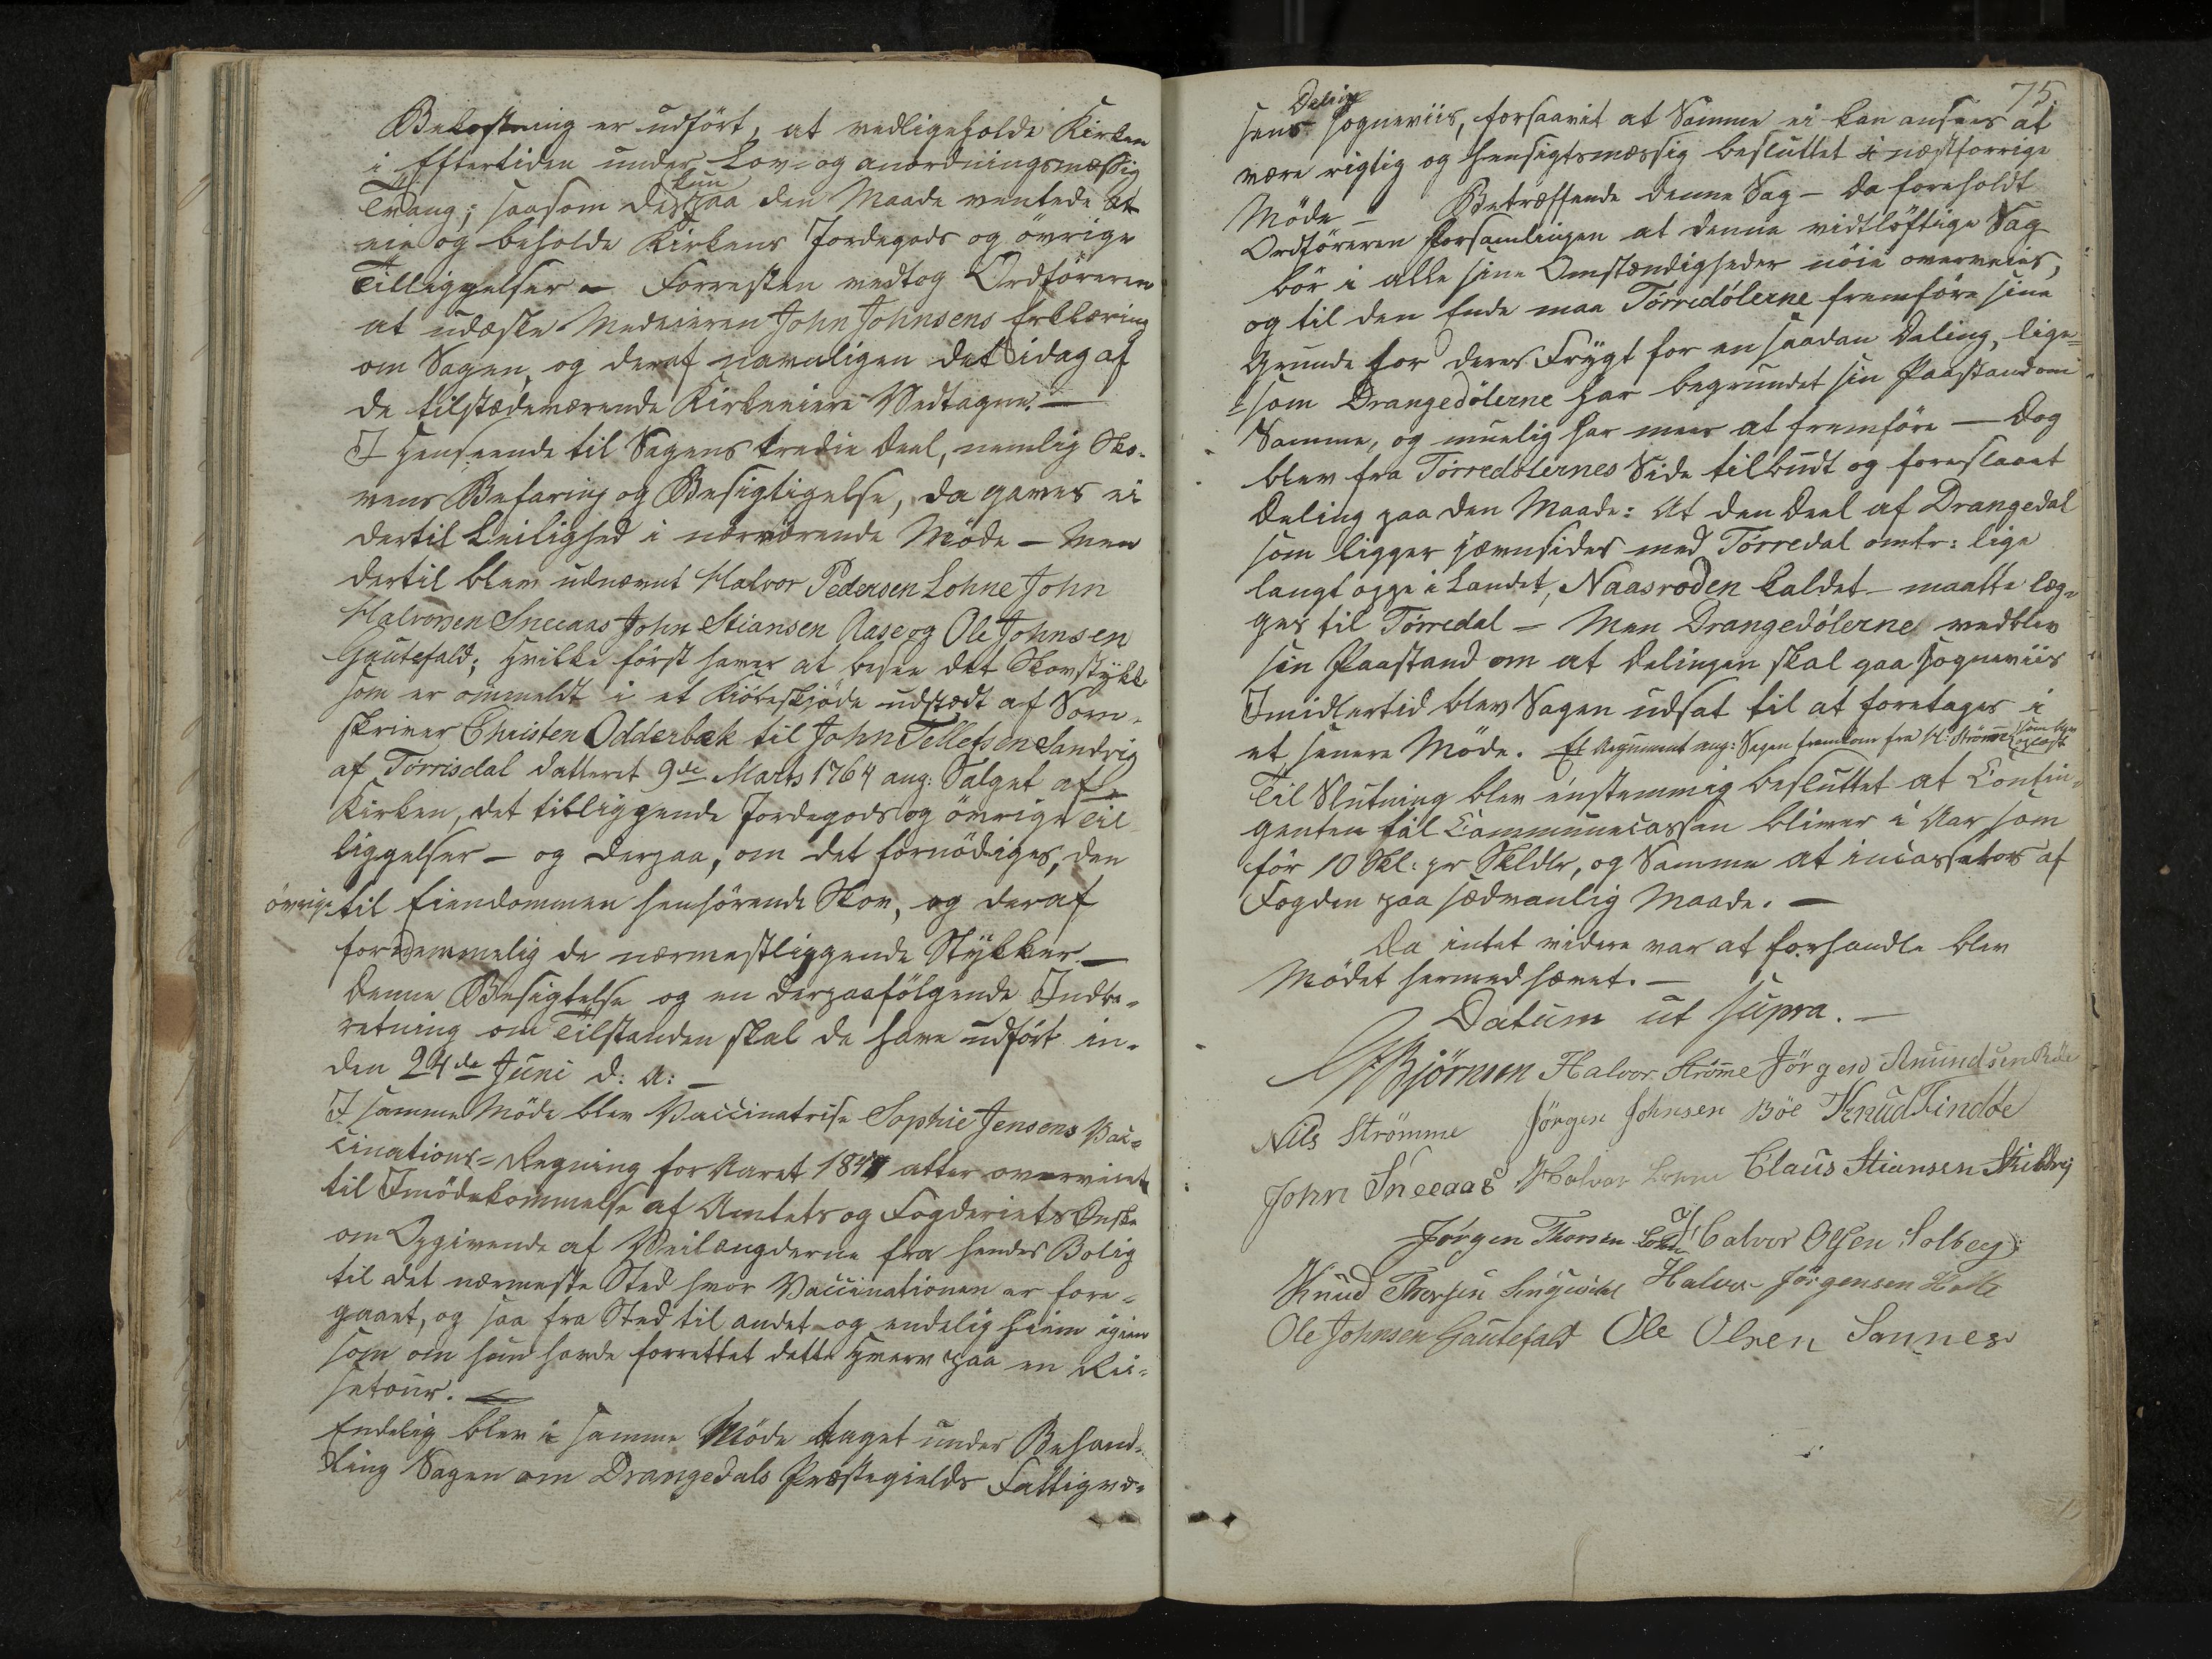 Bekostning er udført, at vedligeholde Kirken
i Eftertiden under Lov- og anordningsmæssig
Tvang; saasom de kun paa den Maade ventede at
eie og beholde Kirkens Jordegods og övrige
Tilliggelser — Forresten vedtog Ordföreren
at udæske Medeieren John Johnsens Erklæring
om Sagen, og deraf navnligen det idag af
de tilstædeværende Kirkeeiere Vedtagne. —
I Henseende til Sagens tredie Deel, nemlig Sko-
vens Befaring og Besigtigelse, da gaves ei
dertil Leilighed i nærværende Möde — Men
dertil blev udnævnt Halvor Pedersen Lohne John
Halvorsen Sneeaas John Stiansen Aase og Ole Johnsen
Gautefald; Hvilke först haver at besee det Skovstykke
som er ommeldt i et Kiöbeskjöde udstædt af Sorn-
skriver Christen Odderbæk til John Tellefsen Sandvig
af Törrisdal datteret 9de Marts 1764 ang: Salget af
Kirken, det tilliggende Jordegods og övrige Til
liggelser — og derpaa, om det fornödiges, den
övrige til Eiendommen henhörende Skov, og deraf
fornemmelig de nærmestliggende Stykker. —
Denne Besigtelse og en derpaafölgende Indbe-
retning om Tilstanden skal de have udfört in-
den 24de Juni d: A: —
I samme Möde blev Vaccinatrise Sophie Jensens Vac-
cinations-Regning for Aaret 1841 atter overveiet
til Imödekommelse af Amtets og Fogderiets Önske
om Opgivende af Veilængderne fra hendes Bolig
til det nærmeste Sted hvor Vaccinationen er fore-
gaaet, og saa fra Sted til andet og endelig hiem igien
som om hun havde forrettet dette Hverv paa en Rei-
setour. —
Endelig blev i samme Möde taget under Behand-
ling Sagen om Drangedals Præstegields Fattigvæ-
75
sens Deling sogneviis, forsaavit at Samme ei kan ansees at
være rigtig og hensigtsmæssig besluttet i næstforrige
Möde — Betræffende denne Sag — da foreholdt
Ordföreren Forsamlingen at denne vidtlöftige Sag
bör i alle sine Omstændigheder nöie overveies,
og til den Ende maa Törredölerne fremföre sine
Grunde for deres Frygt for en saadan Deling, lige-
som Drangedölerne har begrundet sin Paastand om
Samme, og muelig har meer at fremföre — Dog
blev fra Törredölernes Side tilbudt og foreslaaet
Deling paa den Maade: At den Deel af Drangedal
som ligger jævnsides med Törredal omtr: lige
langt oppe i Landet, Naasroden kaldet — maatte læg-
ges til Törredal — Men Drangedölerne vedblev
sin Paastand om at Delingen skal gaa sogneviis
Imidlertid blev Sagen udsat til at foretages i
et senere Möde. Et Argument ang: Sagen fremkom fra H: Strömme, som blev oplæst
Til Slutning blev eenstemmig besluttet at Contin-
genten til Communecassen bliver i Aar som
för 10 Skl: pr Skldlr, og Samme at incasseres af
Fogden paa sædvanlig Maade. —
Da intet videre var at forhandle blev
Mödet hermed hævet. —
Datum ut supra. —
Björnsen Halvor Strömme Jörgen Amundsen
Nils Strömme Jörgen Johnsen Böe Knud Tindöe
John Sneeaas Halvor Lohne Claus Stiansen
Jörgen Thorsen Halvor Olsen Solberg
Knud Halvor Jörgensen
Ole Johnsen Gautefald Ole Olsen Sannes